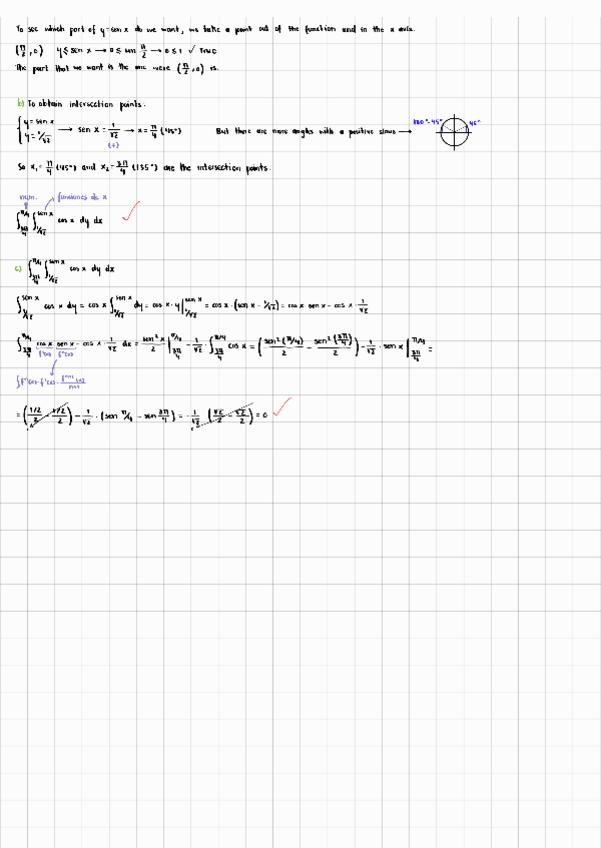 To see which part of y=sen x do we want, we take a point out of the function and in the x axis.
(π/2, 0) y ≤ sen x → 0 ≤ sen π/2 → 0 ≤ 1 ✓ True
The part that we want is the one were (π/2, 0) is.
b) To obtain intersection points:
{ y = sen x
y = 1/√2 → sen x = 1/√2 (+) → x = π/4 (45°) But there are more angles with a positive sinus → 180°-45° 45°
So x₁ = π/4 (45°) and x₂ = 3π/4 (135°) are the intersection points.
funciones de x
∫_{3π/4}^{π/4} ∫_{1/√2}^{sen x} cos x dy dx ✓
c) ∫_{3π/4}^{π/4} ∫_{1/√2}^{sen x} cos x dy dx
∫_{1/√2}^{sen x} cos x dy = cos x ∫_{1/√2}^{sen x} dy = cos x · y |_{1/√2}^{sen x} = cos x · (sen x - 1/√2) = cos x · sen x - cos x · 1/√2
∫_{3π/4}^{π/4} cos x · sen x - cos x · 1/√2 dx = sen² x/2 |_{3π/4}^{π/4} - 1/√2 · ∫_{3π/4}^{π/4} cos x = (sen²(π/4)/2 - sen²(3π/4)/2) - 1/√2 · sen x |_{3π/4}^{π/4} =
= (1/2/2 - 1/2/2) - 1/√2 · (sen π/4 - sen 3π/4) = - 1/√2 (√2/2 - √2/2) = 0 ✓